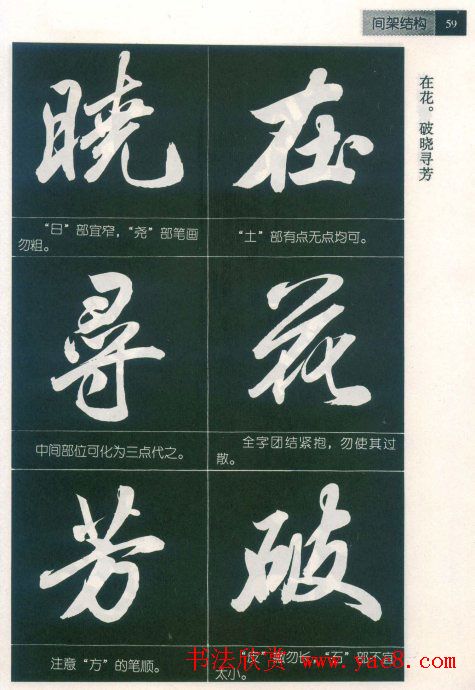 间架结构 59
在花。破晓寻芳
在
“土”部有点无点均可。
花
全字团结紧抱，勿使其过
散。
破
“皮”撇勿长，“石”部不宜
太小。
晓
“日”部宜窄，“尧”部笔画
勿粗。
寻
中间部位可化为三点代之。
芳
注意“方”的笔顺。
书法欣赏www.yac8.com